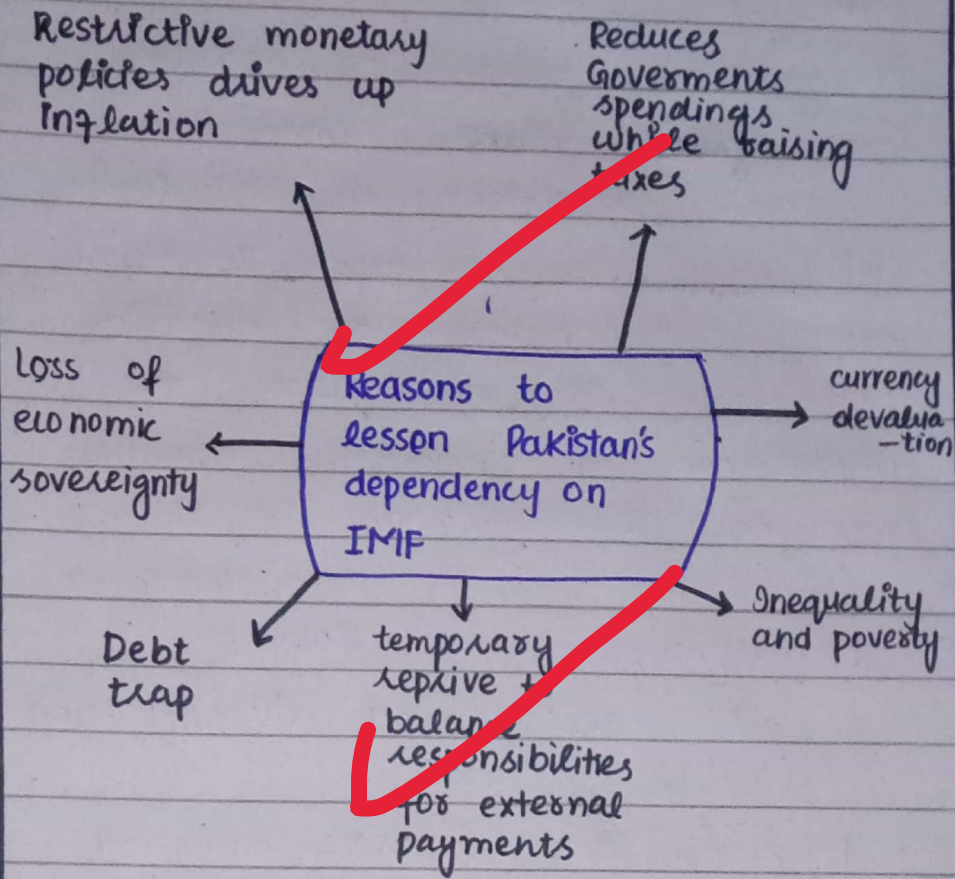 Restrictive monetary
policies drives up
Inflation
Reduces
Goverments
spendings
while raising
taxes
Loss of
economic
sovereignty
Reasons to
lesson Pakistan's
dependency on
IMF
currency
devalua
-tion
Debt
trap
temporary
reprive to
balance
responsibilities
for external
payments
Inequality
and poverty